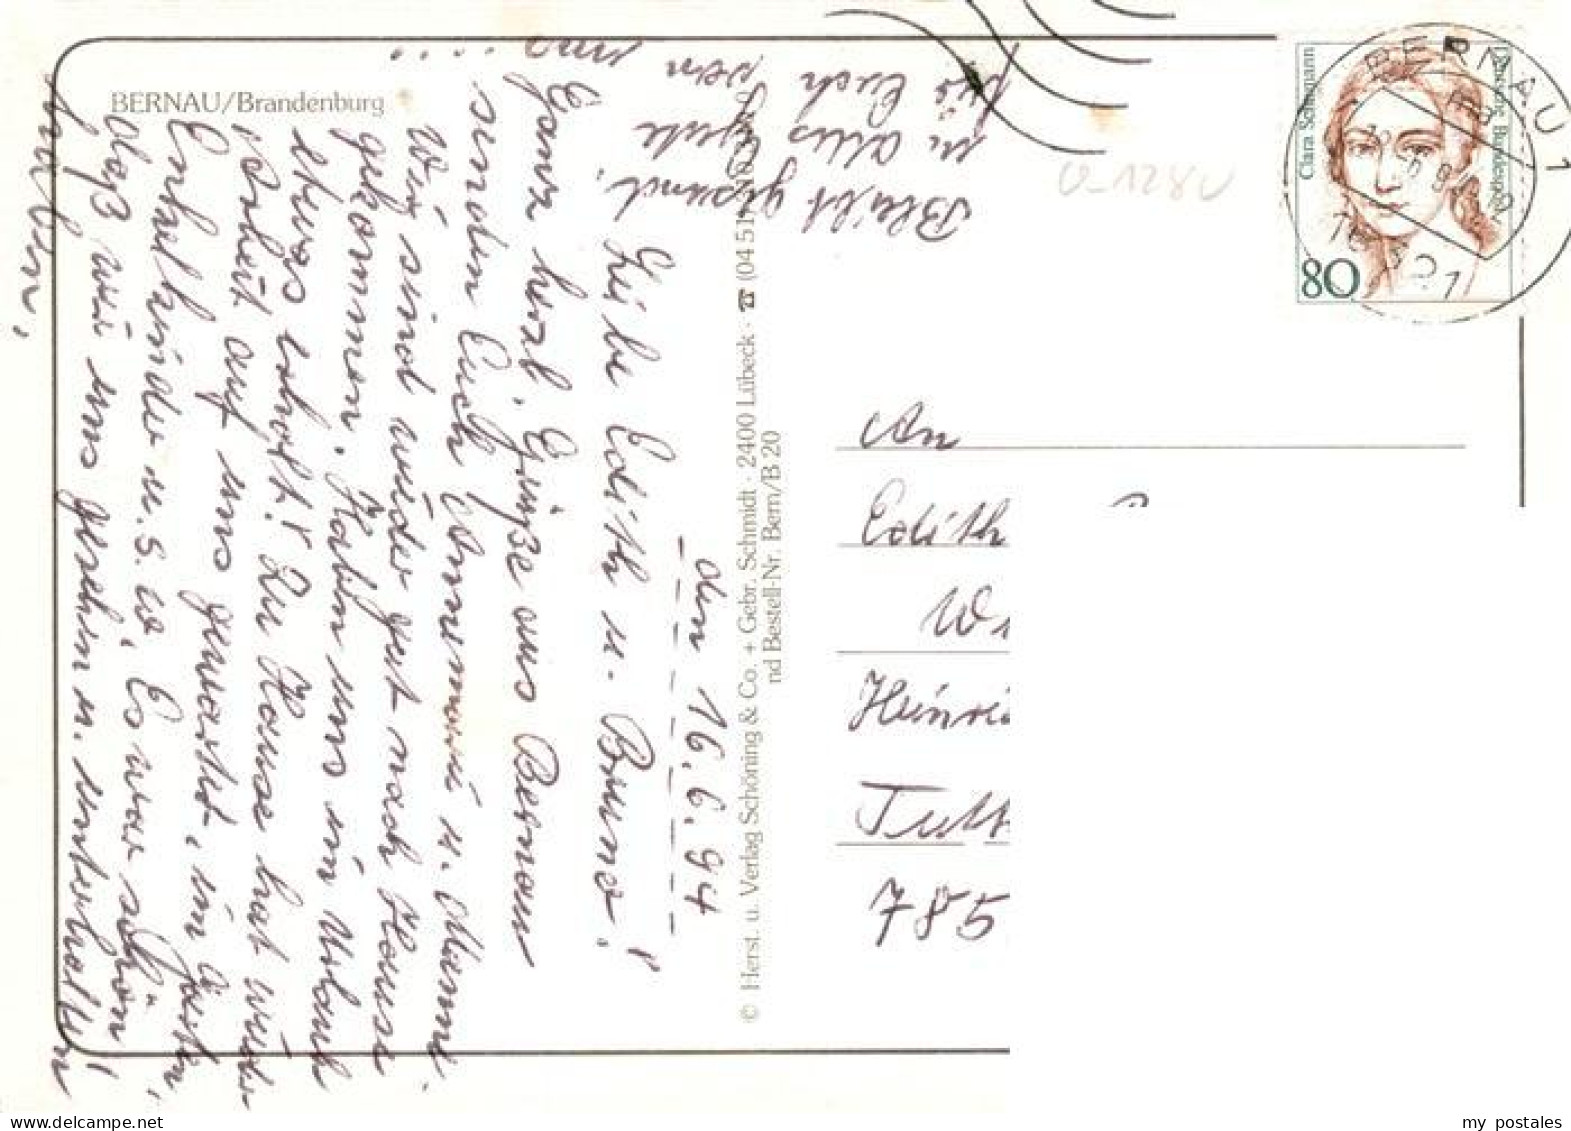 BERNAU/Brandenburg
den 16.6.94
Liebe Edith u. Bruno!
Ganz herzl. Grüße aus Bernau
senden Euch Annemarie u. Manni.
Wir sind wieder gut nach Hause
gekommen. Haben uns im Urlaub
etwas erholt! Zu Hause hat wieder
Arbeit auf uns gewartet, im Garten,
Enkelkinder u.s.w. Es war schön,
daß wir uns gesehen u. unterhalten
haben.
Bleibt gesund,
u. alles Gute
für Euch von
uns
© Herst. u. Verlag Schöning & Co. + Gebr. Schmidt · 2400 Lübeck · ☎ (04 51)
nd Bestell-Nr. Bern/B 20
0-1280
Clara Schumann
Deutsche Bundespost
80
BERNAU 1
An
Edith
Heinri
Tutt
785
my postales